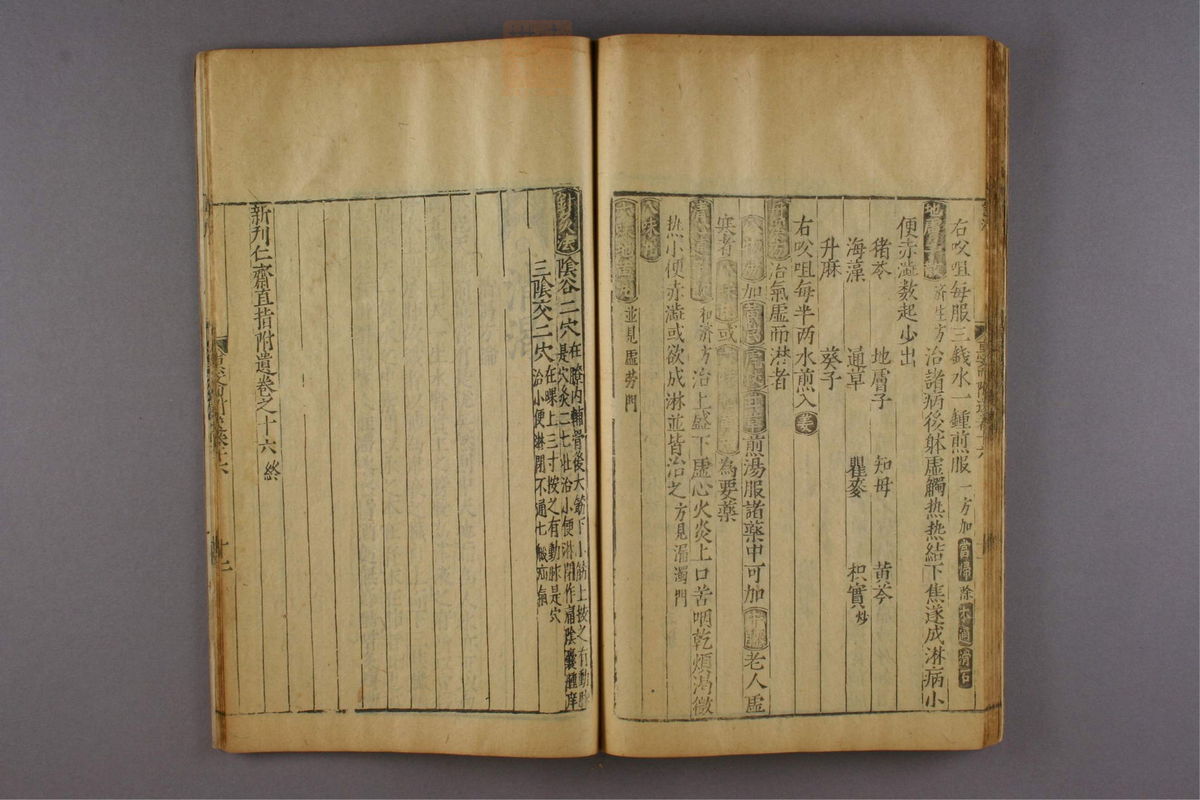 右㕮咀每服三錢水一鍾煎服一方加當歸除木通滑石
地膚子散濟生方治諸病後躰虛觸热热結下焦遂成淋病小
便赤澁数起少出
猪苓 地膚子 知母 黄芩
海藻 通草 瞿麥 枳實炒
升麻 葵子
右㕮咀每半两水煎入姜
治氣虛而淋者
加煎湯服諸藥中可加牛膝老人虛
寒者或為要藥
清心蓮子飲和濟方治上盛下虛心火炎上口苦咽乾煩渴微
热小便赤澁或欲成淋並皆治之方見濁門
八味丸
六味地黄丸並見虛勞門
針灸法陰谷二穴在膝内輔骨後大筋下小筋上按之有動脉
是穴灸二七壮治小便淋閉作痛陰囊腫痒
三陰交二穴在踝上三寸按之有動脉是穴
治小便淋閉不通七般疝氣
新刋仁齋直指附遺卷之十六終